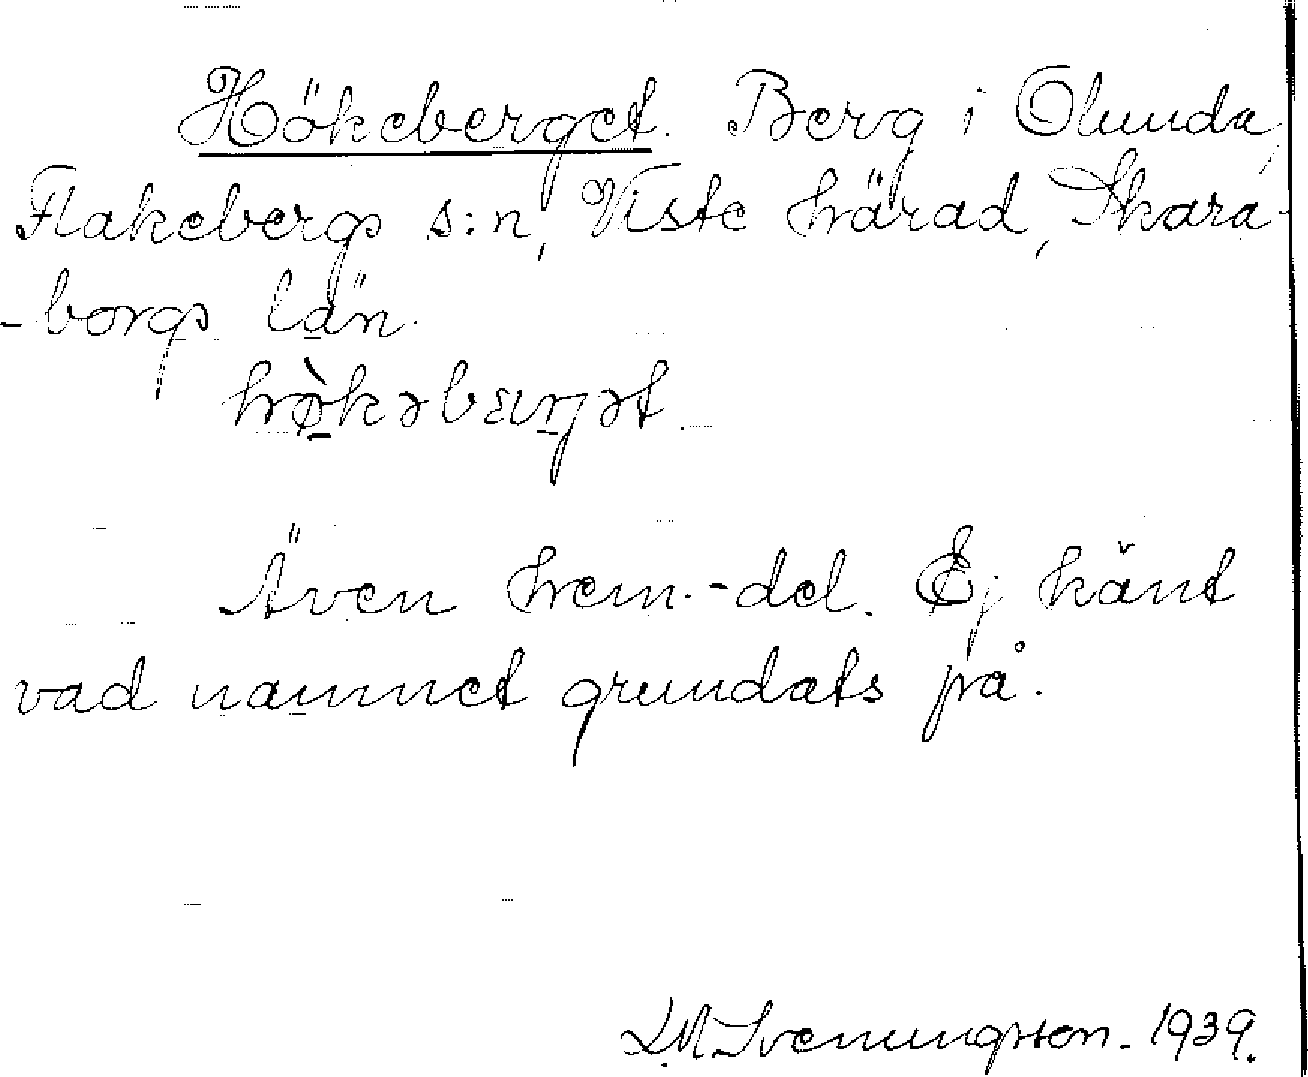 Hökeberget. Berg i Olunda,
Flakebergs s:n, Viste härad, Skara-
-borgs län.
hø̀kəbærjət.
Även hem.-del. Ej känt
vad namnet grundats på.
L.M. Svenungsson. 1939.